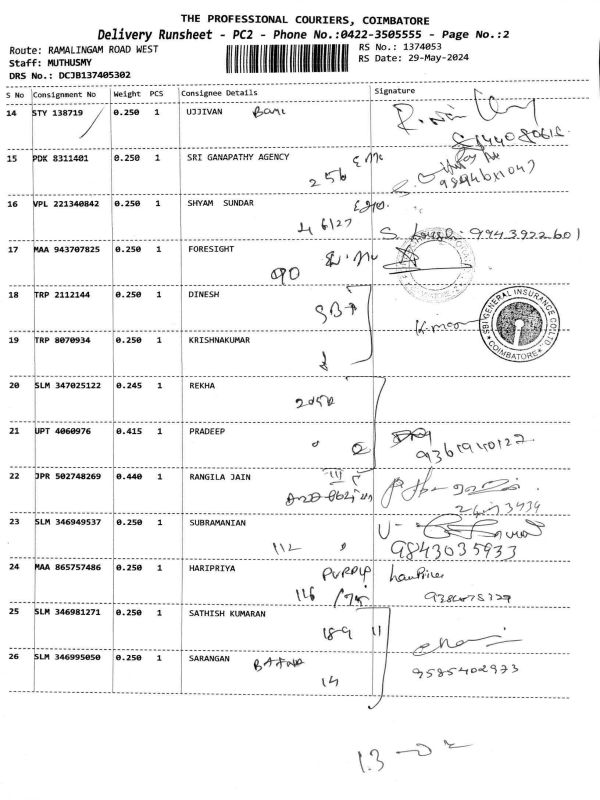 THE PROFESSIONAL COURIERS, COIMBATORE
Delivery Runsheet - PC2 - Phone No.:0422-3505555 - Page No.:2
Route: RAMALINGAM ROAD WEST
RS No.: 1374053
Staff: MUTHUSMY
RS Date: 29-May-2024
DRS No.: DCJB137405302
S No Consignment No Weight PCS Consignee Details Signature
14 STY 138719 0.250 1 UJJIVAN
15 PDK 8311401 0.250 1 SRI GANAPATHY AGENCY
256
16 VPL 221340842 0.250 1 SHYAM SUNDAR
46127
9943922601
17 MAA 943707825 0.250 1 FORESIGHT
90
18 TRP 2112144 0.250 1 DINESH
SBI GENERAL INSURANCE CO.LTD.
COIMBATORE
19 TRP 8070934 0.250 1 KRISHNAKUMAR
20 SLM 347025122 0.245 1 REKHA
21 UPT 4060976 0.415 1 PRADEEP
22 JPR 502748269 0.440 1 RANGILA JAIN
23 SLM 346949537 0.250 1 SUBRAMANIAN
112
9843035933
24 MAA 865757486 0.250 1 HARIPRIYA
PURPLE
116
25 SLM 346981271 0.250 1 SATHISH KUMARAN
189
26 SLM 346995050 0.250 1 SARANGAN
14
9585402973